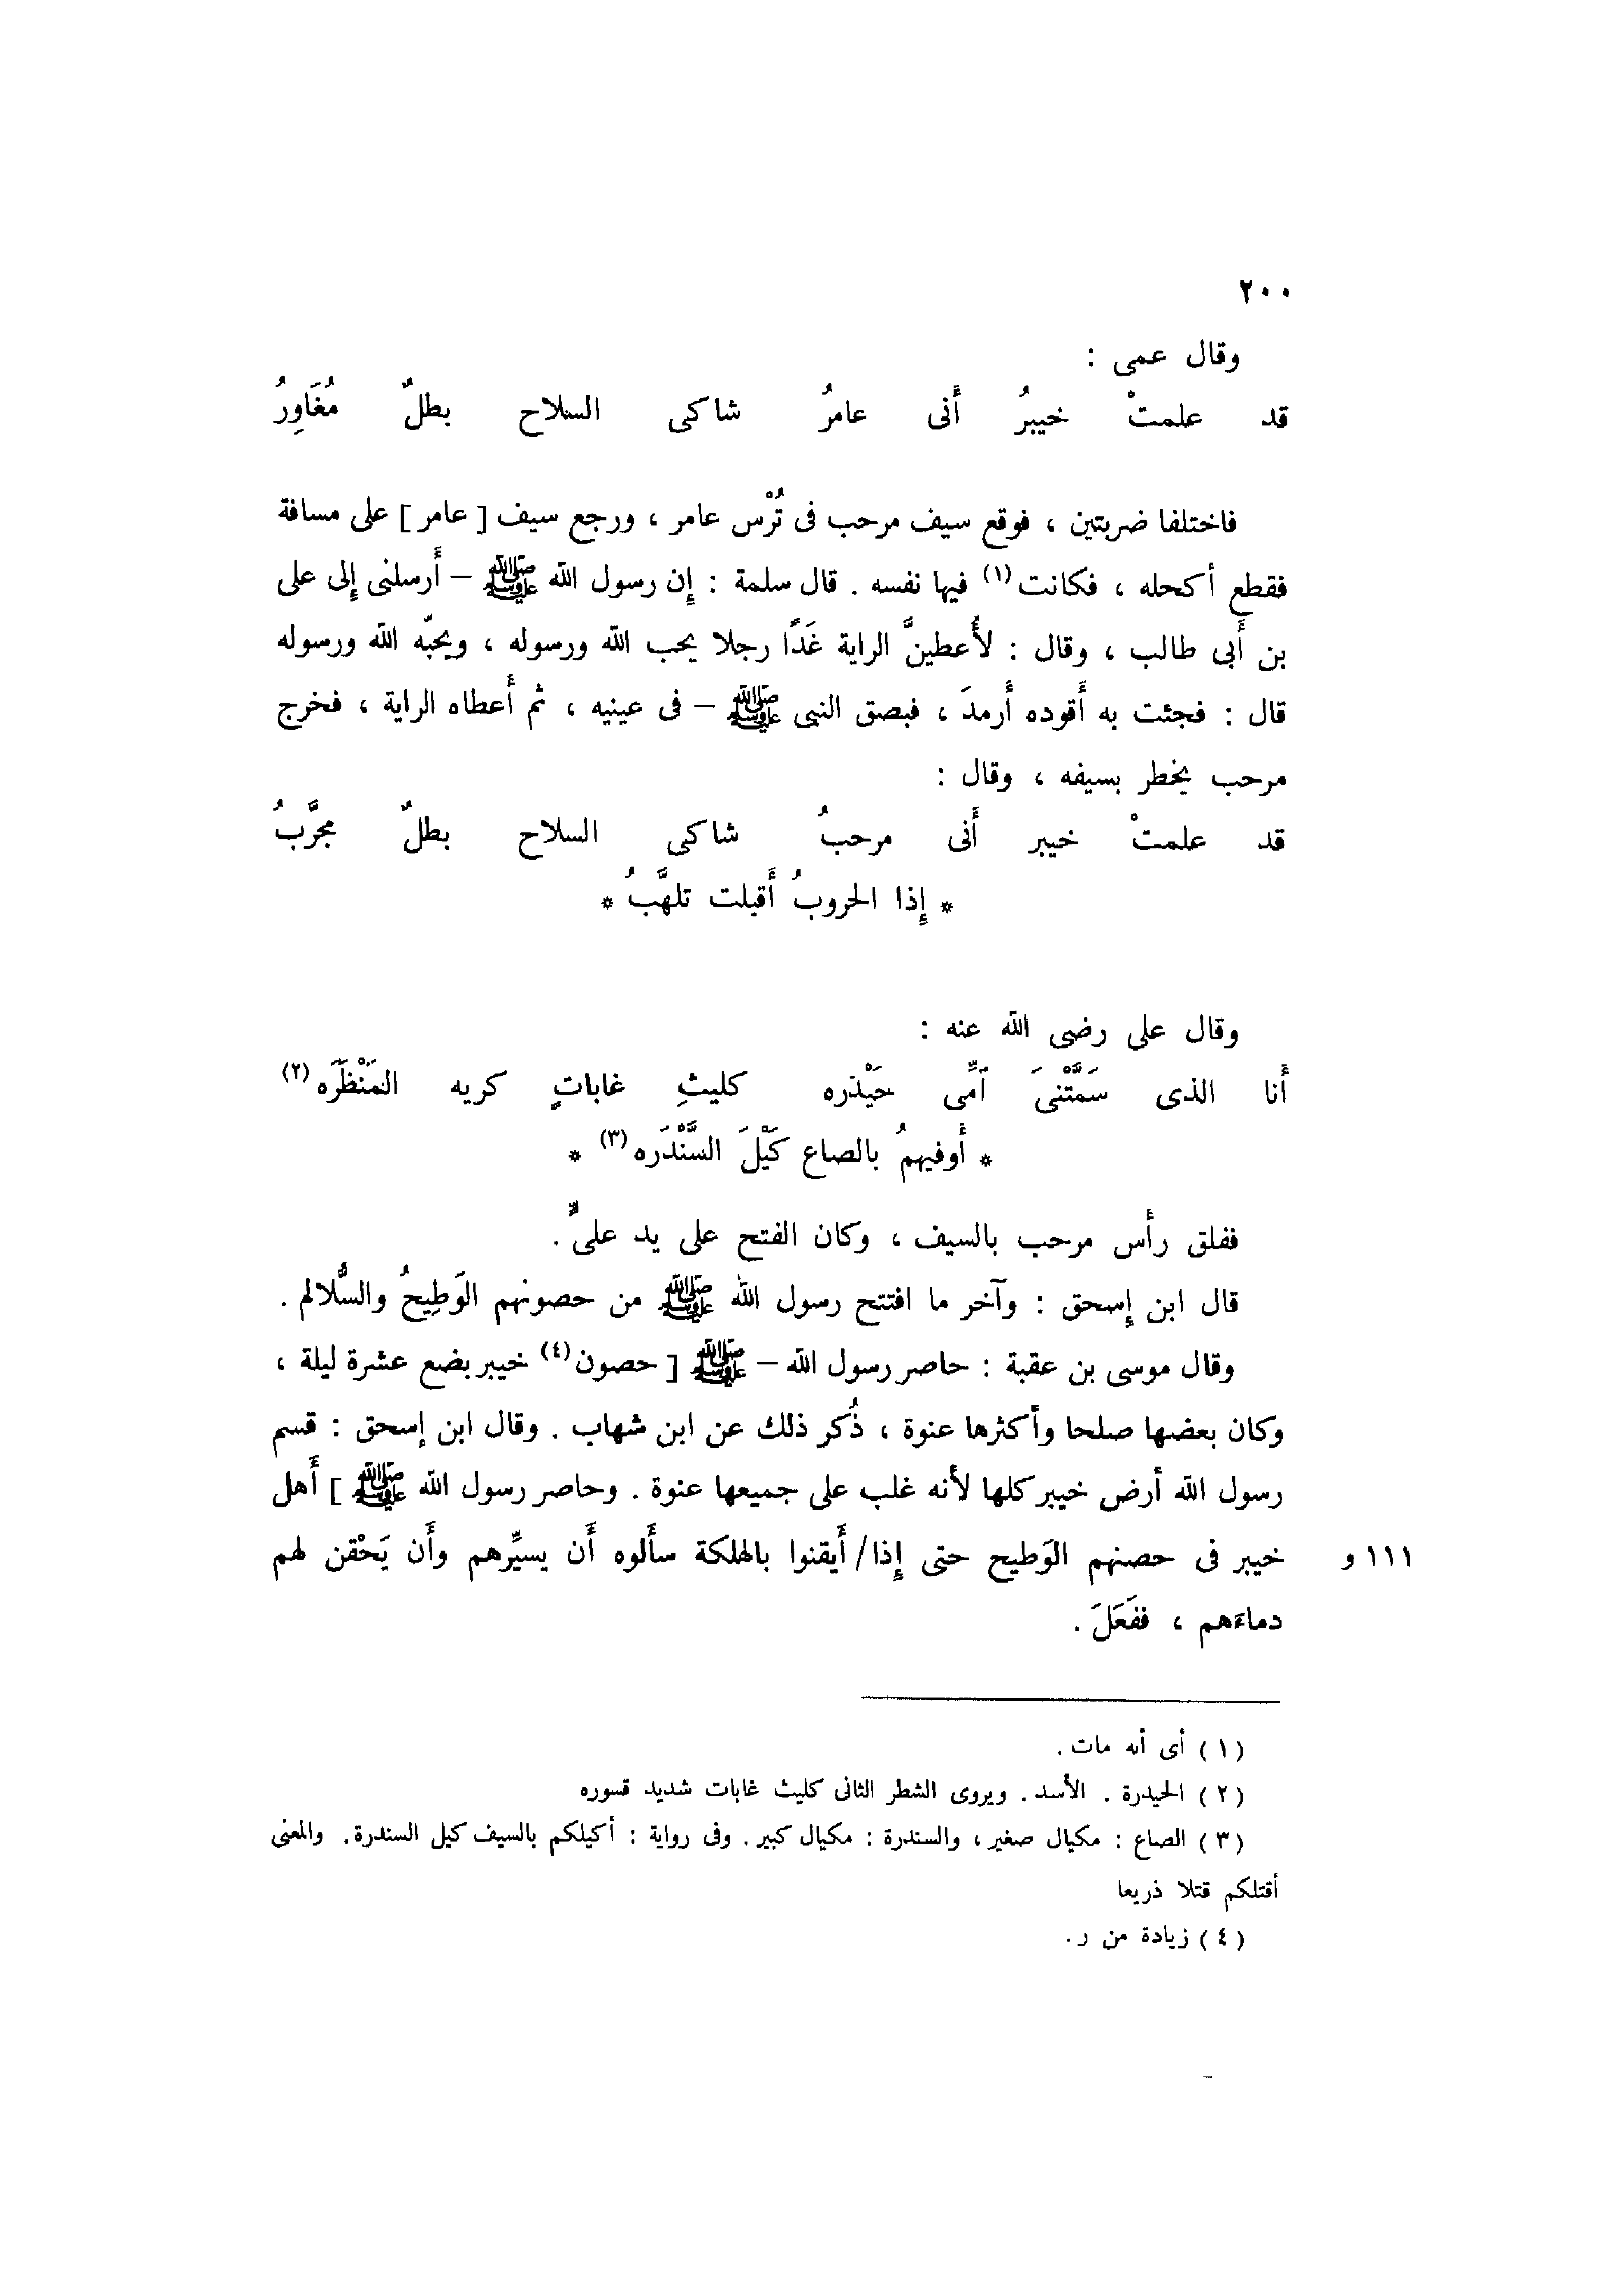 ٢٠٠
وقال عمى :
قد علمتْ خيبرُ أَنى عامرُ شاكى السلاح بطلٌ مُغَاوِرُ
فاختلفا ضربتين ، فوقع سيف مرحب فى تُرْس عامر ، ورجع سيف [ عامر ] على مسافة
فقطع أكحله ، فكانت (١) فيها نفسه . قال سلمة : إِن رسول الله ﷺ – أَرسلنى إِلى على
بن أَبى طالب ، وقال : لأُعطينَّ الراية غَدًا رجلا يحب الله ورسوله ، ويحبّه الله ورسوله
قال : فجئت به أَقوده أَرمدَ ، فبصق النبى ﷺ – فى عينيه ، ثم أَعطاه الراية ، فخرج
مرحب يخطر بسيفه ، وقال :
قد علمتْ خيبر أَنى مرحبُ شاكى السلاح بطلٌ مجرَّبُ
* إِذا الحروبُ أَقبلت تلهَّبُ *
وقال على رضى الله عنه :
أَنا الذى سَمَّتْنىَ أمِّى حَيْدره كليثِ غاباتٍ كريه المَنْظَرَه (٢)
* أَوفيهمُ بالصاع كَيْلَ السَّنْدَره (٣) *
ففلق رأَس مرحب بالسيف ، وكان الفتح على يد علىٍّ .
قال ابن إِسحق : وآخر ما افتتح رسول الله ﷺ من حصونهم الوَطِيحُ والسُّلالم .
وقال موسى بن عقبة : حاصر رسول الله – ﷺ [ حصون (٤) خيبر بضع عشرة ليلة ،
وكان بعضها صلحا وأكثرها عنوة ، ذُكر ذلك عن ابن شهاب . وقال ابن إسحق : قسم
رسول الله أرض خيبر كلها لأنه غلب على جميعها عنوة . وحاصر رسول الله ﷺ ] أَهل
خيبر فى حصنهم الوَطيح حتى إِذا / أَيقنوا بالهلكة سأَلوه أَن يسيِّرهم وأَن يَحْقن لهم
١١١ و
دماءَهم ، ففَعَلَ .
( ١ ) أى أنه مات .
( ٢ ) الحيدرة . الأسد . ويروى الشطر الثانى كليث غابات شديد قسوره
( ٣ ) الصاع : مكيال صغير ، والسندرة : مكيال كبير . وفى رواية : أكيلكم بالسيف كيل السندرة . والمعنى
أقتلكم قتلا ذريعا
( ٤ ) زيادة من ر .